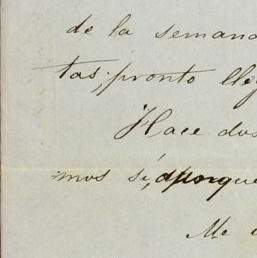 de la semana
tas; pronto lle
Hace dos
mos sí, porque
Me